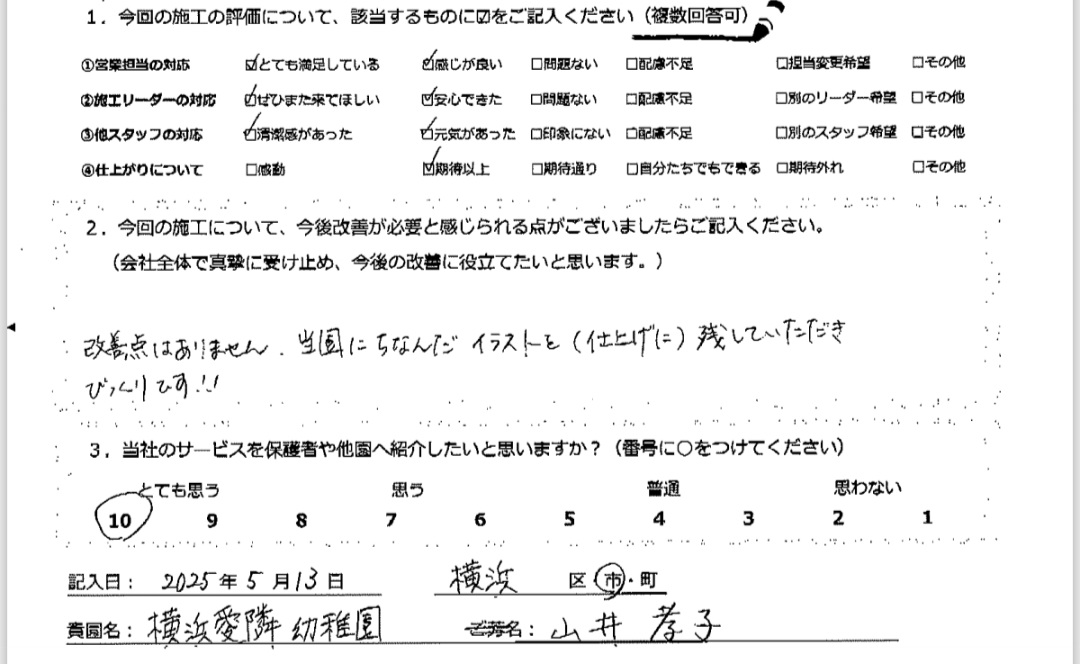 1．今回の施工の評価について、該当するものに☑をご記入ください（複数回答可）
①営業担当の対応 ☑とても満足している ☑感じが良い □問題ない □配慮不足 □担当変更希望 □その他
②施工リーダーの対応 ☑ぜひまた来てほしい ☑安心できた □問題ない □配慮不足 □別のリーダー希望 □その他
③他スタッフの対応 ☑清潔感があった ☑元気があった □印象にない □配慮不足 □別のスタッフ希望 □その他
④仕上がりについて □感動 ☑期待以上 □期待通り □自分たちでもできる □期待外れ □その他
2．今回の施工について、今後改善が必要と感じられる点がございましたらご記入ください。
（会社全体で真摯に受け止め、今後の改善に役立てたいと思います。）
改善点はありません。当園にちなんだイラストを（仕上げに）残していただき
びっくりです!!
3．当社のサービスを保護者や他園へ紹介したいと思いますか？（番号に○をつけてください）
とても思う 思う 普通 思わない
10 9 8 7 6 5 4 3 2 1
記入日： 2025年5月13日 横浜 区・市・町
貴園名： 横浜愛隣幼稚園 ご芳名： 山井 孝子